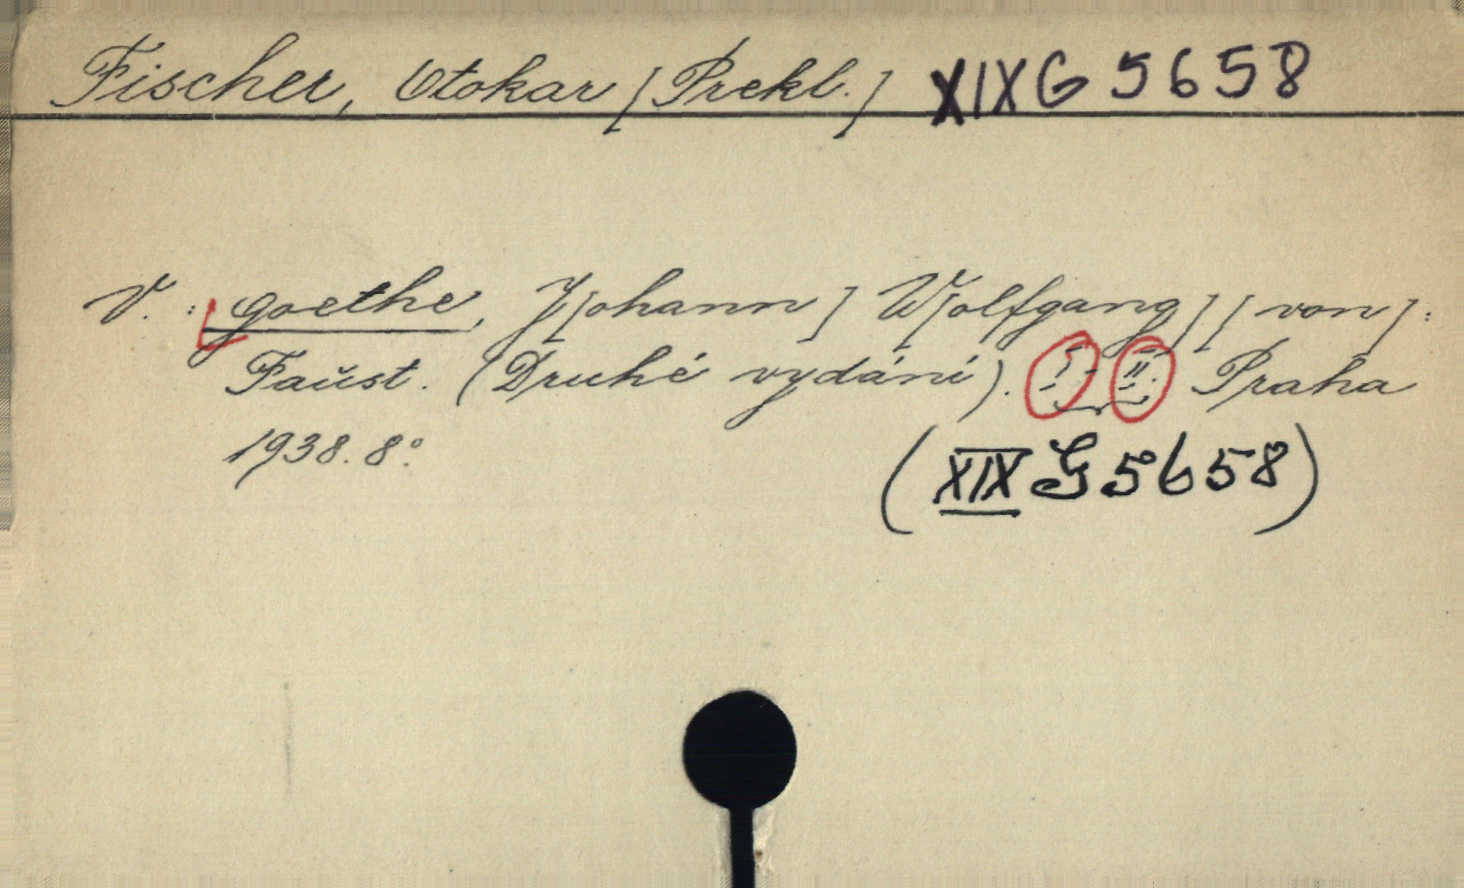 Fischer, Otokar [Překl.] XIX G 5658
V.: Goethe, J[ohann] W[olfgang] [von]:
Faust. (Druhé vydání). I.-II. Praha
1938. 8°.
(XIX G 5658)